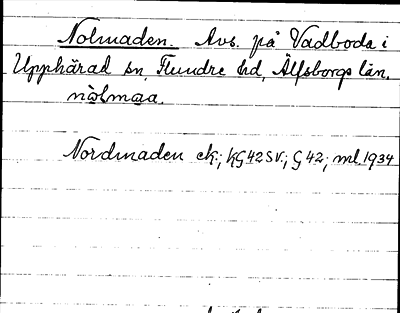 Nolmaden. Avs. på Vadboda i
Upphärad sn, Flundre hd, Älfsborgs län.
nòlmaa.
Nordmaden ek; KG42SV.; G 42; ml. 1934